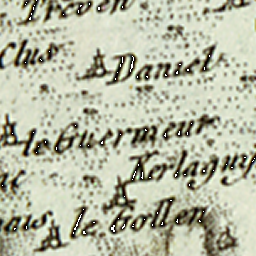 Treven
Clus
Daniel
le Guermeur
Kerlaguy
le Gollen